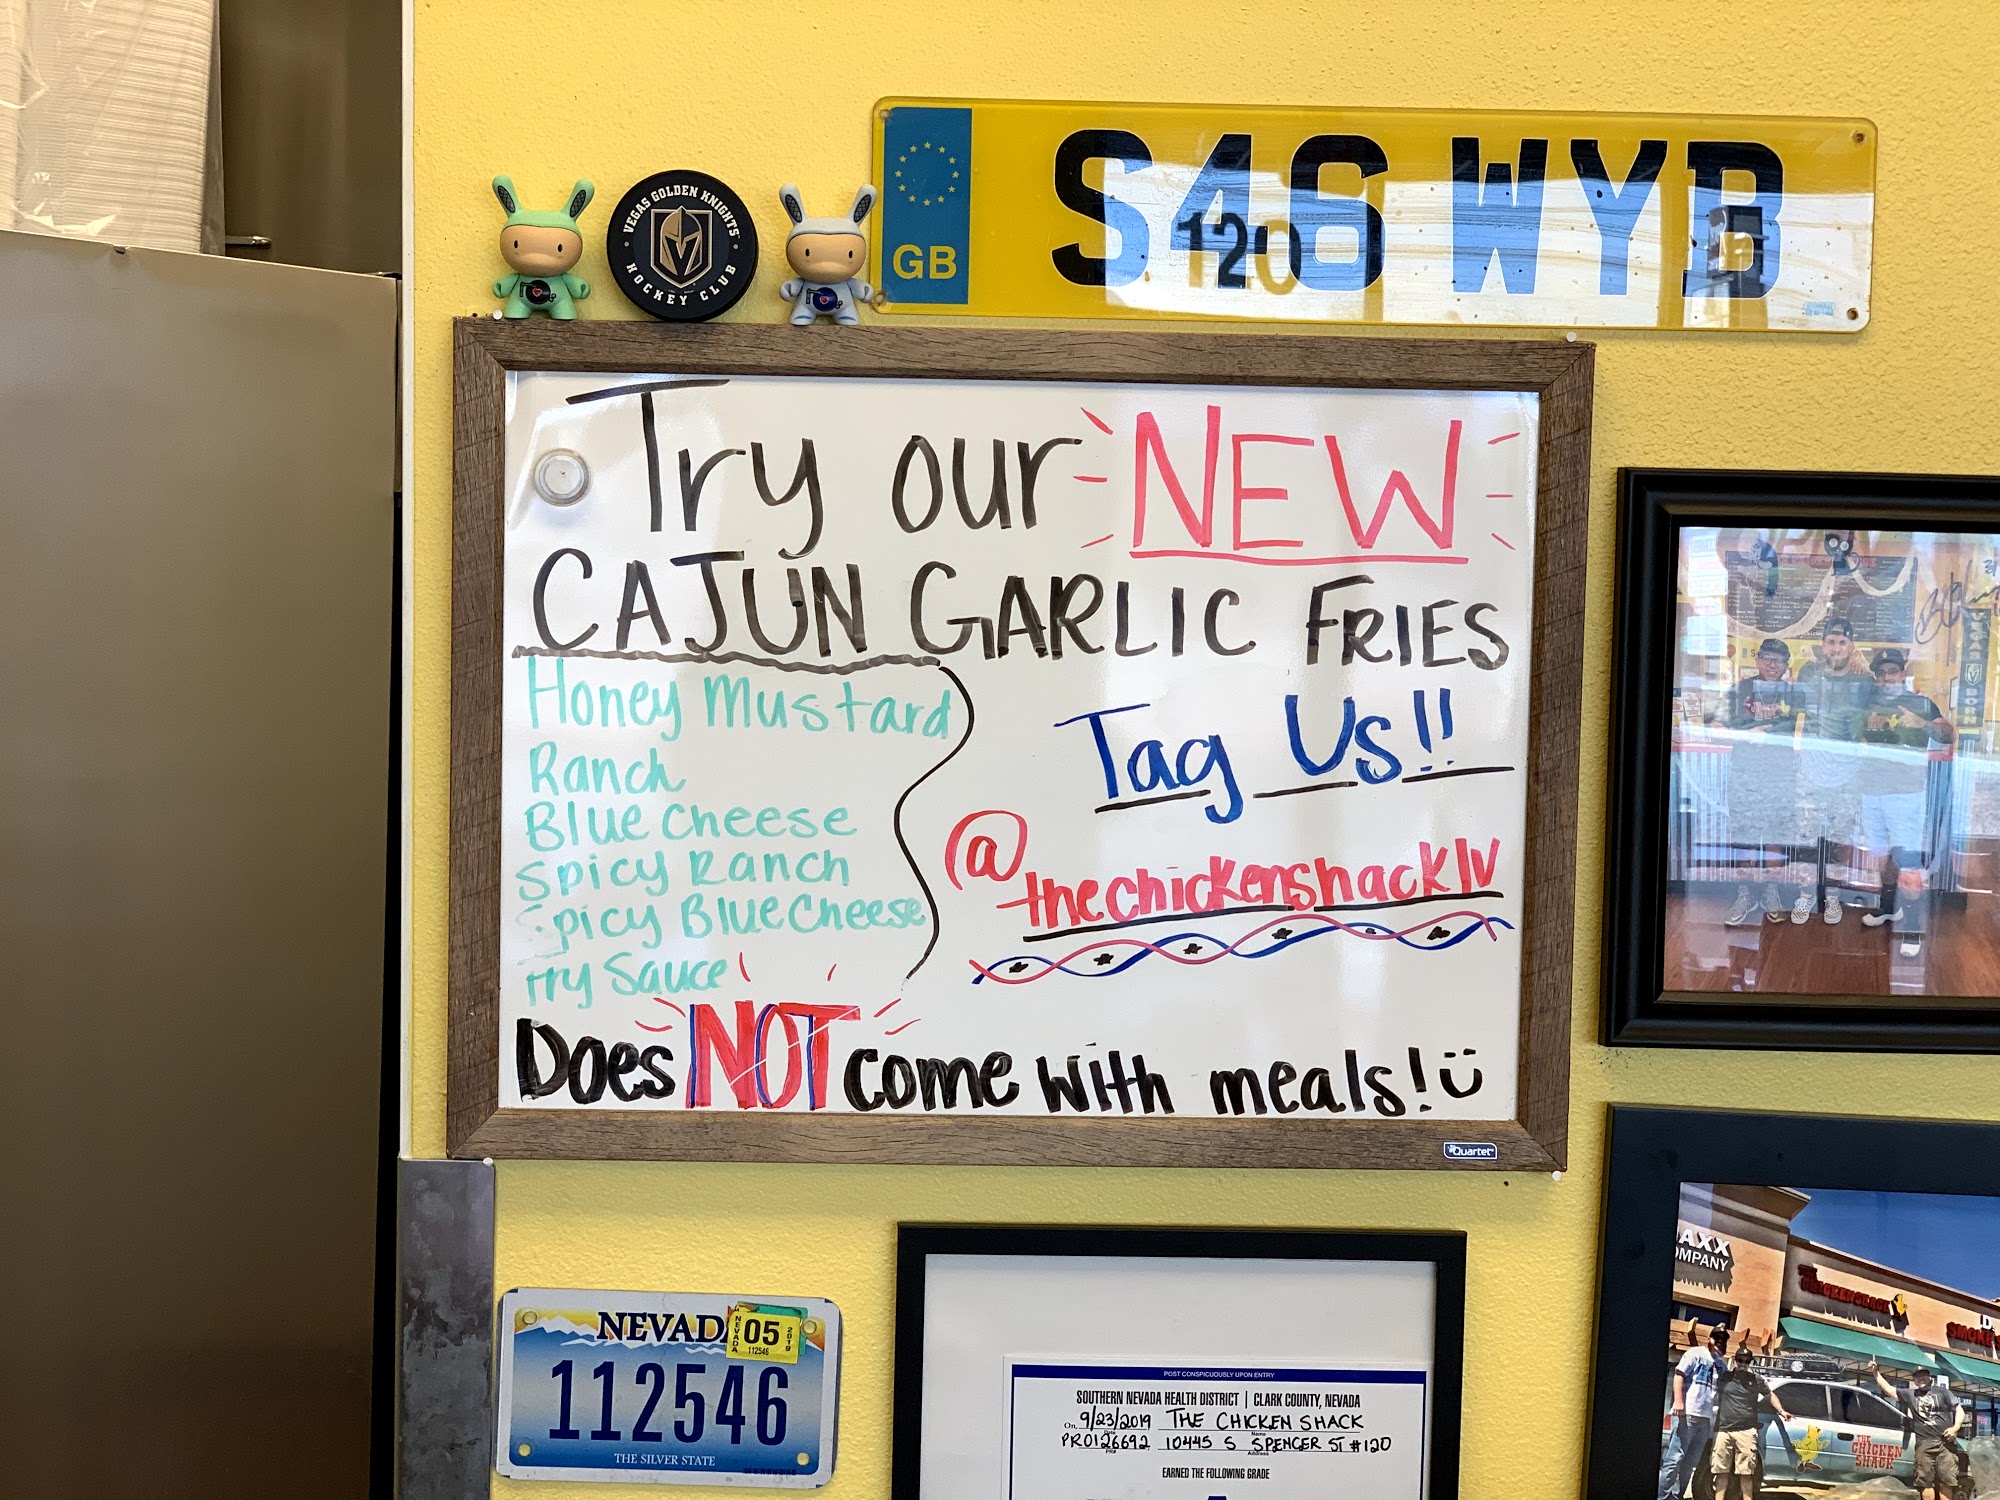 VEGAS GOLDEN KNIGHTS
HOCKEY CLUB
GB
S46 WYB
120
Try our NEW
CAJUN GARLIC FRIES
Honey Mustard
Ranch
Blue Cheese
Spicy Ranch
Spicy Blue Cheese
Fry Sauce
Tag Us!!
@thechickenshacklv
Does NOT come with meals!
Quartet
VEGAS
BORN
NEVADA
05
NEVADA
2019
112546
112546
THE SILVER STATE
POST CONSPICUOUSLY UPON ENTRY
SOUTHERN NEVADA HEALTH DISTRICT | CLARK COUNTY, NEVADA
On, 9/23/2019 THE CHICKEN SHACK
Date Name
PR0126692 10445 S SPENCER ST #120
PR# Address
EARNED THE FOLLOWING GRADE
AXX
OMPANY
THE CHICKEN SHACK
SMOKE
THE CHICKEN SHACK